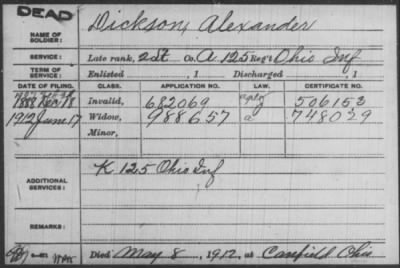 DEAD
NAME OF SOLDIER: Dickson, Alexander
SERVICE: Late rank, 2d Lt Co. A, 125 Reg't Ohio Inf
TERM OF SERVICE: Enlisted , 1 Discharged , 1
DATE OF FILING. CLASS. APPLICATION NO. LAW. CERTIFICATE NO.
1888 Invalid, 682069 506153
1912 June 17 Widow, 988657 a 748029
Minor,
ADDITIONAL SERVICES: K 125 Ohio Inf
REMARKS:
Died May 8, 1912, at Canfield Ohio